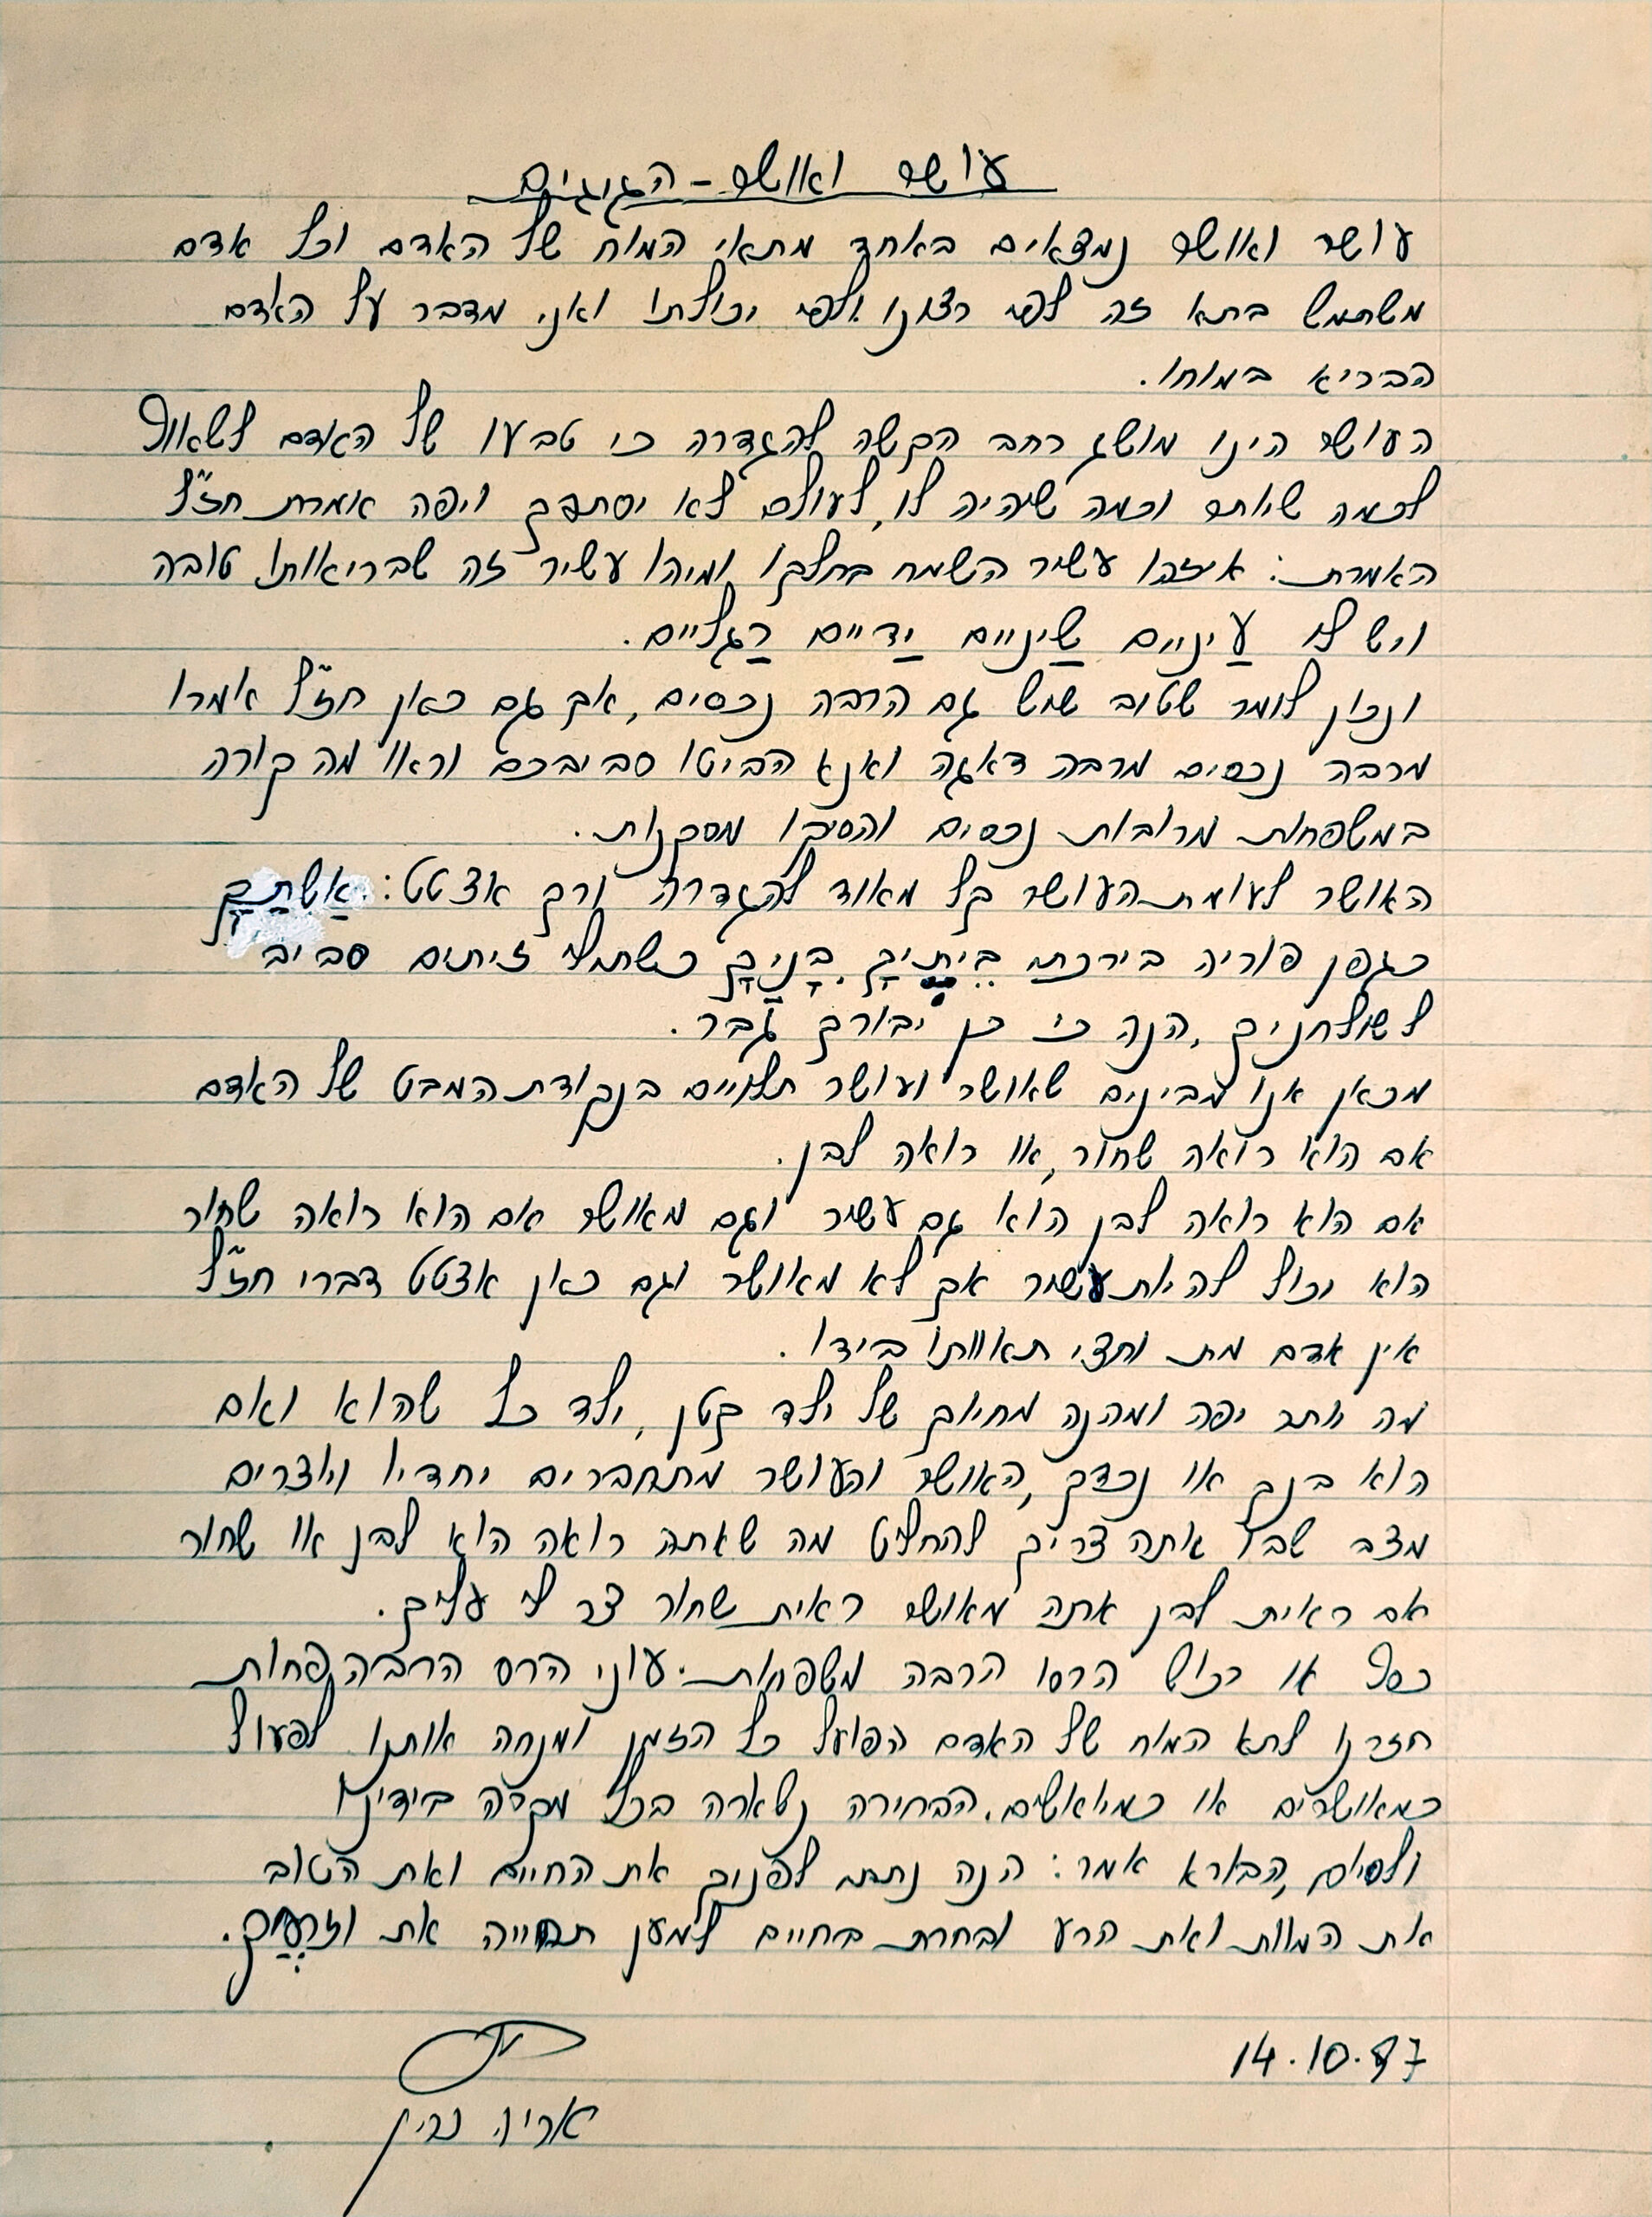 עושר ואושר - הגיגים
עושר ואושר נמצאים באחד מתאי המוח של האדם וכל אדם
משתמש בתא זה לפי רצונו ולפי יכולתו ואני מדבר על האדם
הבריא במוחו.
העושר הינו מושג רחב הקשה להגדרה כי טבעו של האדם לשאוף
לכמה שיותר וכמה שיהיה לו, לעולם לא יסתפק ויפה אמרת חז"ל
האמרת: איזהו עשיר השמח בחלקו ומיהו עשיר זה שבריאותו טובה
ויש לו עַיניים שִיניים יַדיים רַגליים.
ונכון לומר שטוב שיש גם הרבה נכסים, אך גם כאן חז"ל אמרו
מרבה נכסים מרבה דאגה ואנא הביטו סביבכם וראו מה קורה
במשפחות מרובות נכסים והסיקו מסקנות.
האושר לעומת העושר קל מאוד להגדרה ורק אצטט: אֵשְתְךָ
כגפן פוריה בירכתי בֵיתֶיךָ, בָנֶיךָ כשתילי זיתים סביב
לשולחניך, הנה כי כן יבורך גָבר.
מכאן אנו מבינים שאושר ועושר תלויים בנקודת המבט של האדם
אם הוא רואה שחור, או רואה לבן.
אם הוא רואה לבן הוא גם עשיר וגם מאושר אם הוא רואה שחור
הוא יכול להיות עשיר אך לא מאושר וגם כאן אצטט דברי חז"ל
אין אדם מת וחצי תאוותו בידו.
מה יותר יפה ומהנה מחיוך של ילד קטן, ילד כל שהוא ואם
הוא בנך או נכדך, האושר והעושר מתחברים יחדיו ויוצרים
מצב שבו אתה צריך להחליט מה שאתה רואה הוא לבן או שחור
אם ראית לבן אתה מאושר ראית שחור צר לי עליך.
כסף או רכוש הרסו הרבה משפחות. עוני הרס הרבה פחות
חזרנו לתא המוח של האדם הפועל כל הזמן ומנחה אותנו לפעול
כמאושרים או כמיואשים. הבחירה נשארה בכל מקרה בידינו
ולסיום, הבורא אמר: הנה נתתי לפניך את החיים ואת הטוב
את המוות ואת הרע ובחרת בחיים למען תחייה את וזרעֶיך.
14.10.87
אריה